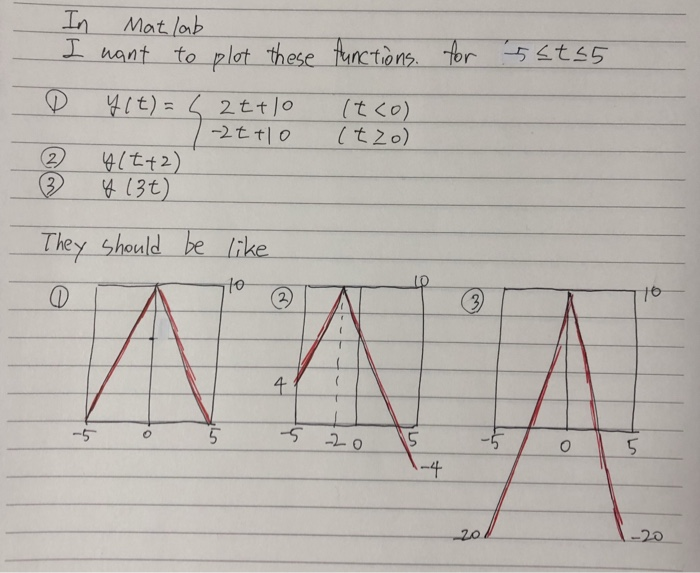 In Matlab
I want to plot these functions. for -5 ≤ t ≤ 5
① y(t) = { 2t+10 (t<0)
-2t+10 (t≥0)
② y(t+2)
③ y(3t)
They should be like
① 10 ② 10 ③ 10
4
-5 0 5 -5 -2 0 5 -5 0 5
-4
-20 -20